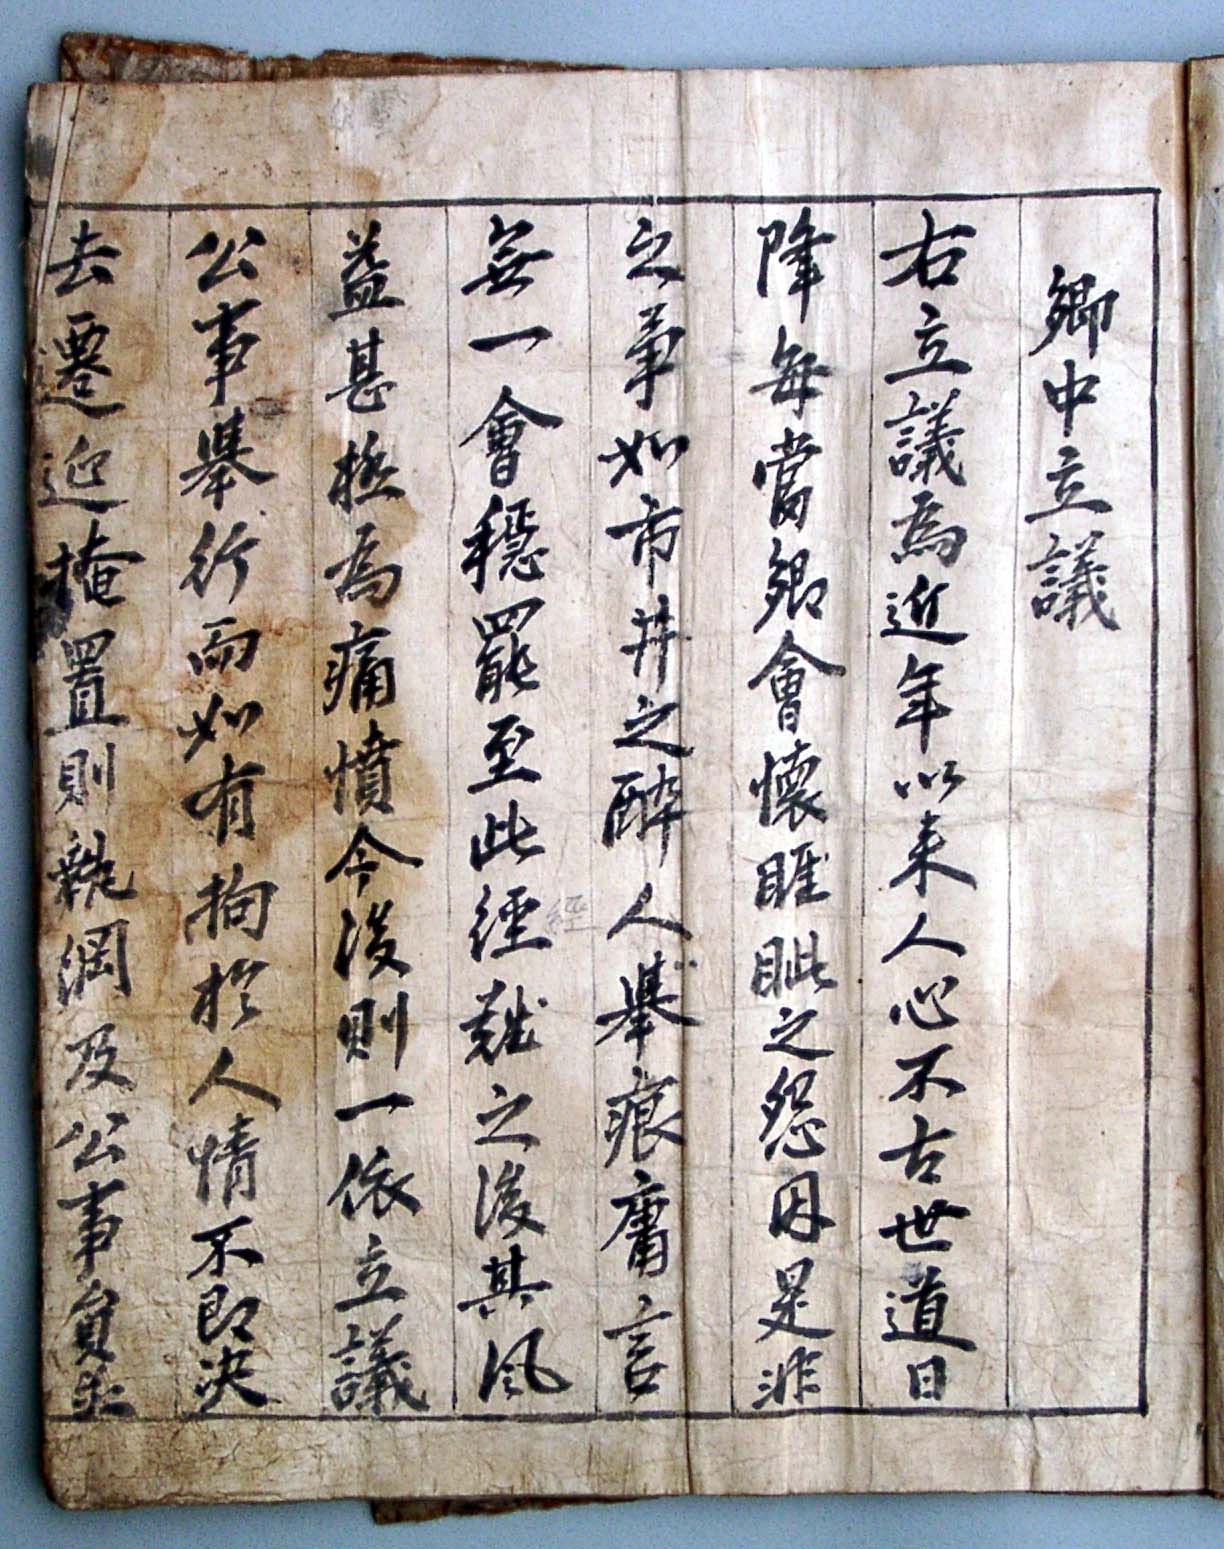 鄕中立議
右立議爲近年以來人心不古世道日
降每當鄕會懷睚眦之怨因是非
之爭如市井之醉人擧痕庸言
無一會穩罷至此經難之後其風
經
益甚極爲痛憤今後則一依立議
公事擧行而如有拘於人情不卽決
去遷延掩置則執綱及公事員